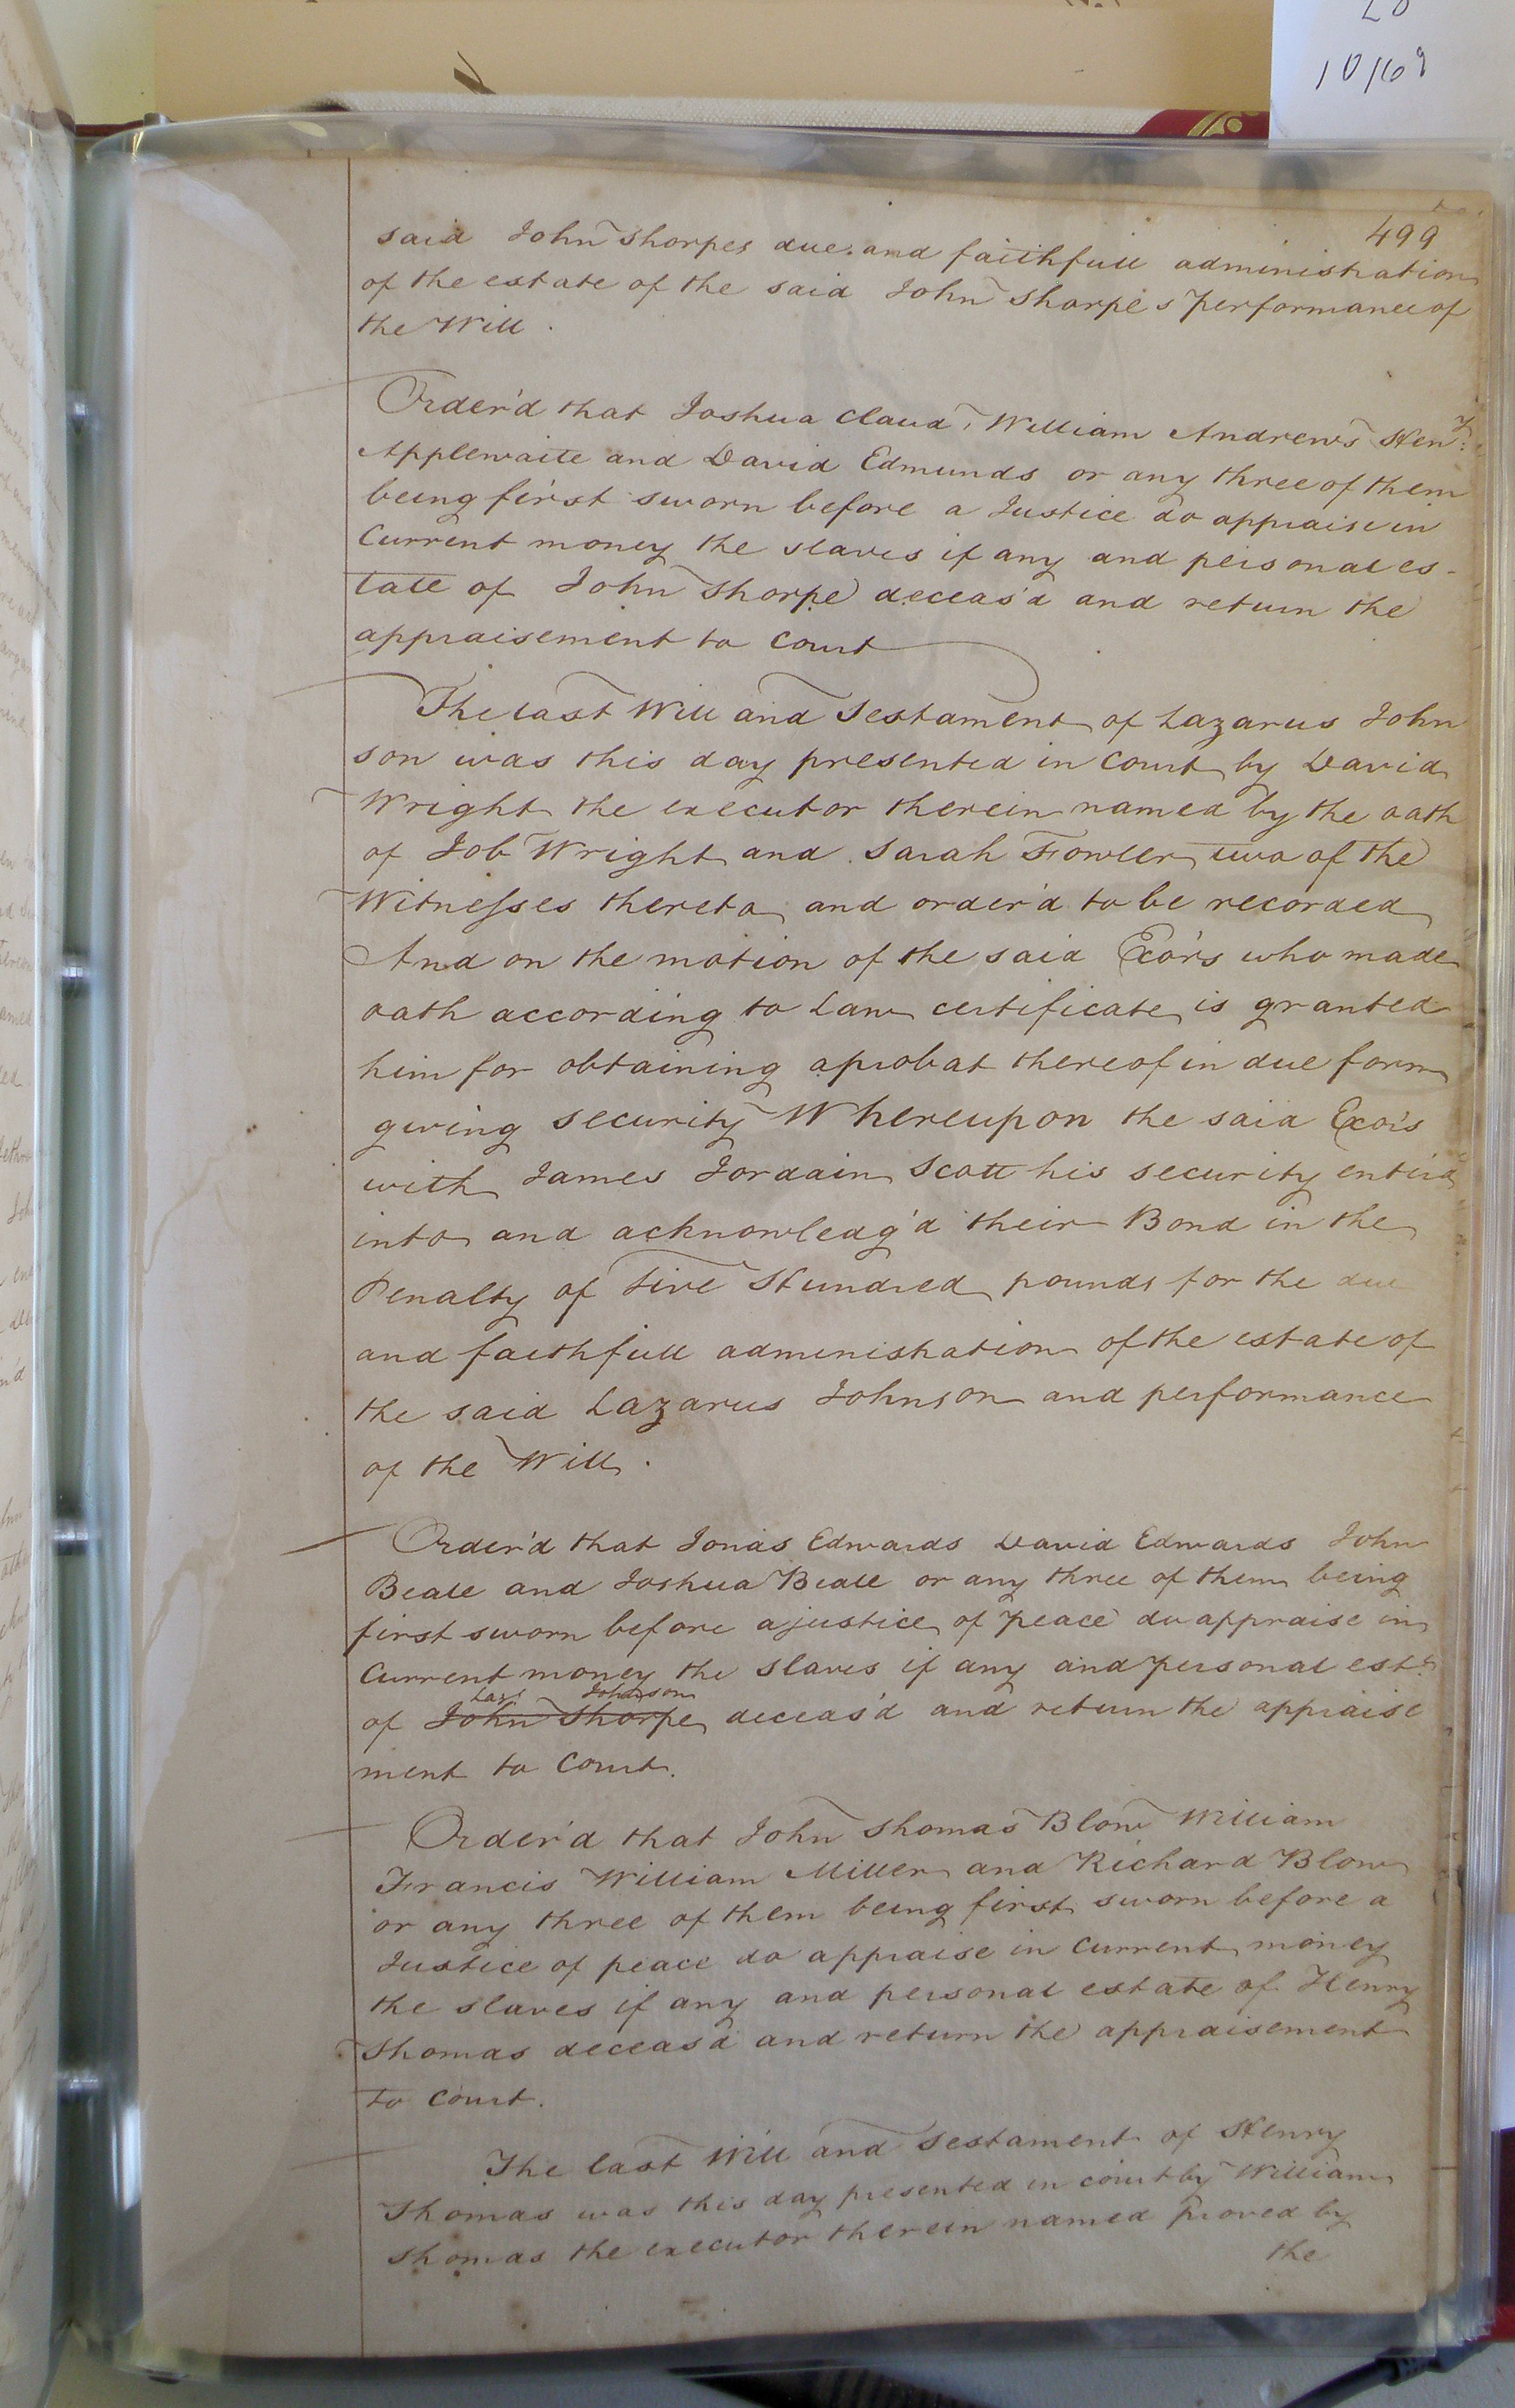 499
said John Thorpes due and faithfull administration
of the estate of the said John Thorpe & performance of
the Will.
Order'd that Joshua Claud, William Andrews Hen.y
Applewaite and David Edmunds or any three of them
being first sworn before a Justice do appraise in
Current money the slaves if any and personal es-
tate of John Thorpe deceas'd and return the
appraisement to Court
The last Will and Testament of Lazarus John
son was this day presented in Court by David
Wright the executor therein named by the oath
of Job Wright and Sarah Fowler two of the
Witnesses thereto and order'd to be recorded
And on the motion of the said Exo'rs who made
oath according to Law certificate is granted
him for obtaining a probat thereof in due form
giving security Whereupon the said Exo'rs
with James Jordain Scott his security enter'd
into and acknowledg'd their Bond in the
Penalty of five Hundred pounds for the due
and faithfull administration of the estate of
the said Lazarus Johnson and performance
of the Will.
Order'd that Jonas Edwards David Edwards John
Beale and Joshua Beale or any three of them being
first sworn before a justice of peace do appraise in
Current money the slaves if any and personal est.e
Laz.s Johnson
of John Thorpe deceas'd and return the appraise
ment to Court.
Order'd that John Thomas Blow William
Francis William Miller and Richard Blow
or any three of them being first sworn before a
Justice of peace do appraise in Current money
the slaves if any and personal estate of Henry
Thomas deceas'd and return the appraisement
to Court.
The last Will and Testament of Henry
Thomas was this day presented in court by William
Thomas the executor therein named proved by
the